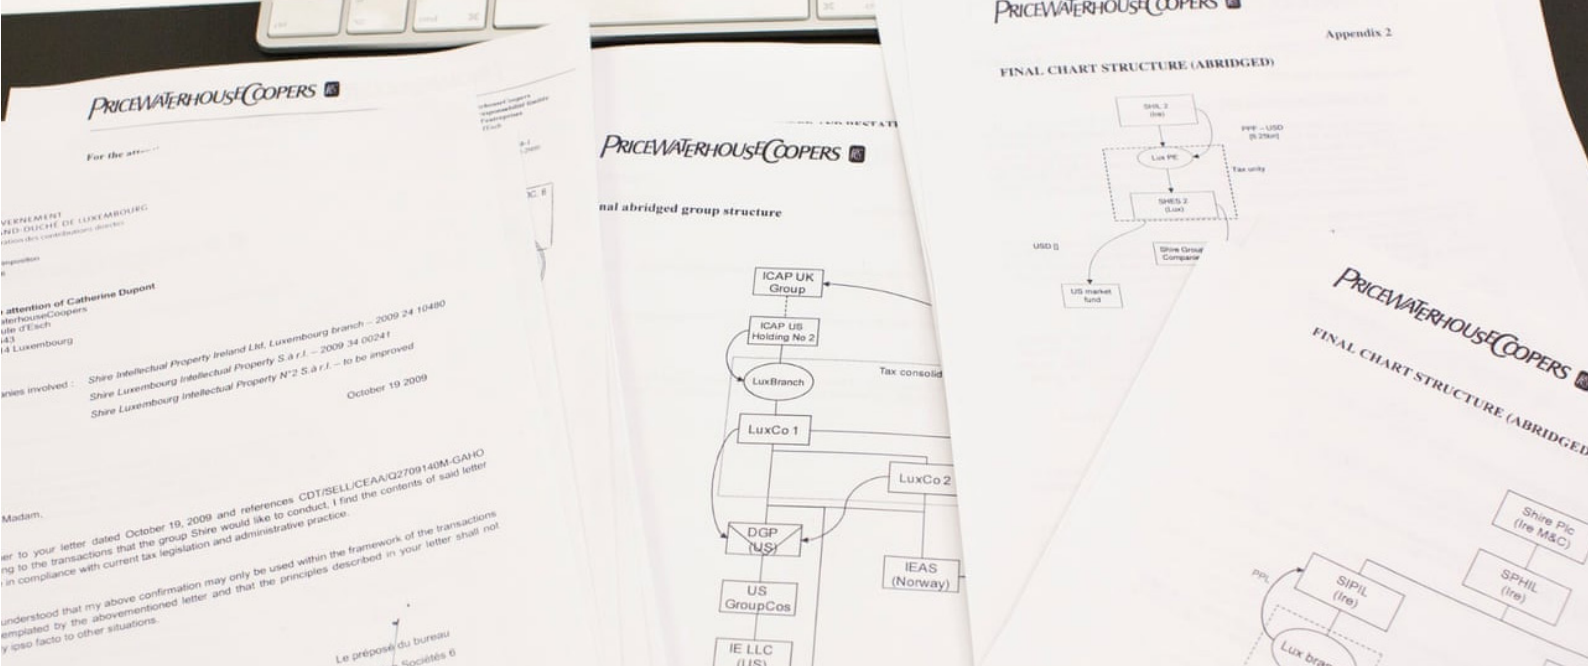 PRICEWATERHOUSECOOPERS
For the
VERNEMENT
ND-DUCHÉ DE LUXEMBOURG
ation des contributions directes
attention of Catherine Dupont
aterhouseCoopers
ute d'Esch
43
4 Luxembourg
nies involved : Shire Intellectual Property Ireland Ltd, Luxembourg branch – 2009 24 10480
Shire Luxembourg Intellectual Property S.à r.l. – 2009 34 00241
Shire Luxembourg Intellectual Property N°2 S.à r.l. – to be improved
October 19 2009
Madam,
er to your letter dated October 19, 2009 and references CDT/SELL/CEAA/Q2709140M-GAHO
ng to the transactions that the group Shire would like to conduct, I find the contents of said letter
in compliance with current tax legislation and administrative practice.
understood that my above confirmation may only be used within the framework of the transactions
emplated by the abovementioned letter and that the principles described in your letter shall not
y ipso facto to other situations.
Le préposé du bureau
Sociétés 6
PRICEWATERHOUSECOOPERS
nal abridged group structure
ICAP UK
Group
ICAP US
Holding No 2
LuxBranch
Tax consolid
LuxCo 1
LuxCo 2
DGP
(US)
IEAS
(Norway)
US
GroupCos
IE LLC
(US)
PRICEWATERHOUSECOOPERS
Appendix 2
FINAL CHART STRUCTURE (ABRIDGED)
SHIL 2
(Ire)
PPF – USD
Lux PE
Tax unity
SHES 2
(Lux)
USD []
Shire Group
Companie
US market
fund
PRICEWATERHOUSECOOPERS
FINAL CHART STRUCTURE (ABRIDGED
Shire Plc
(Ire M&C)
SPHIL
(Ire)
PPL
SIPIL
(Ire)
Lux bran